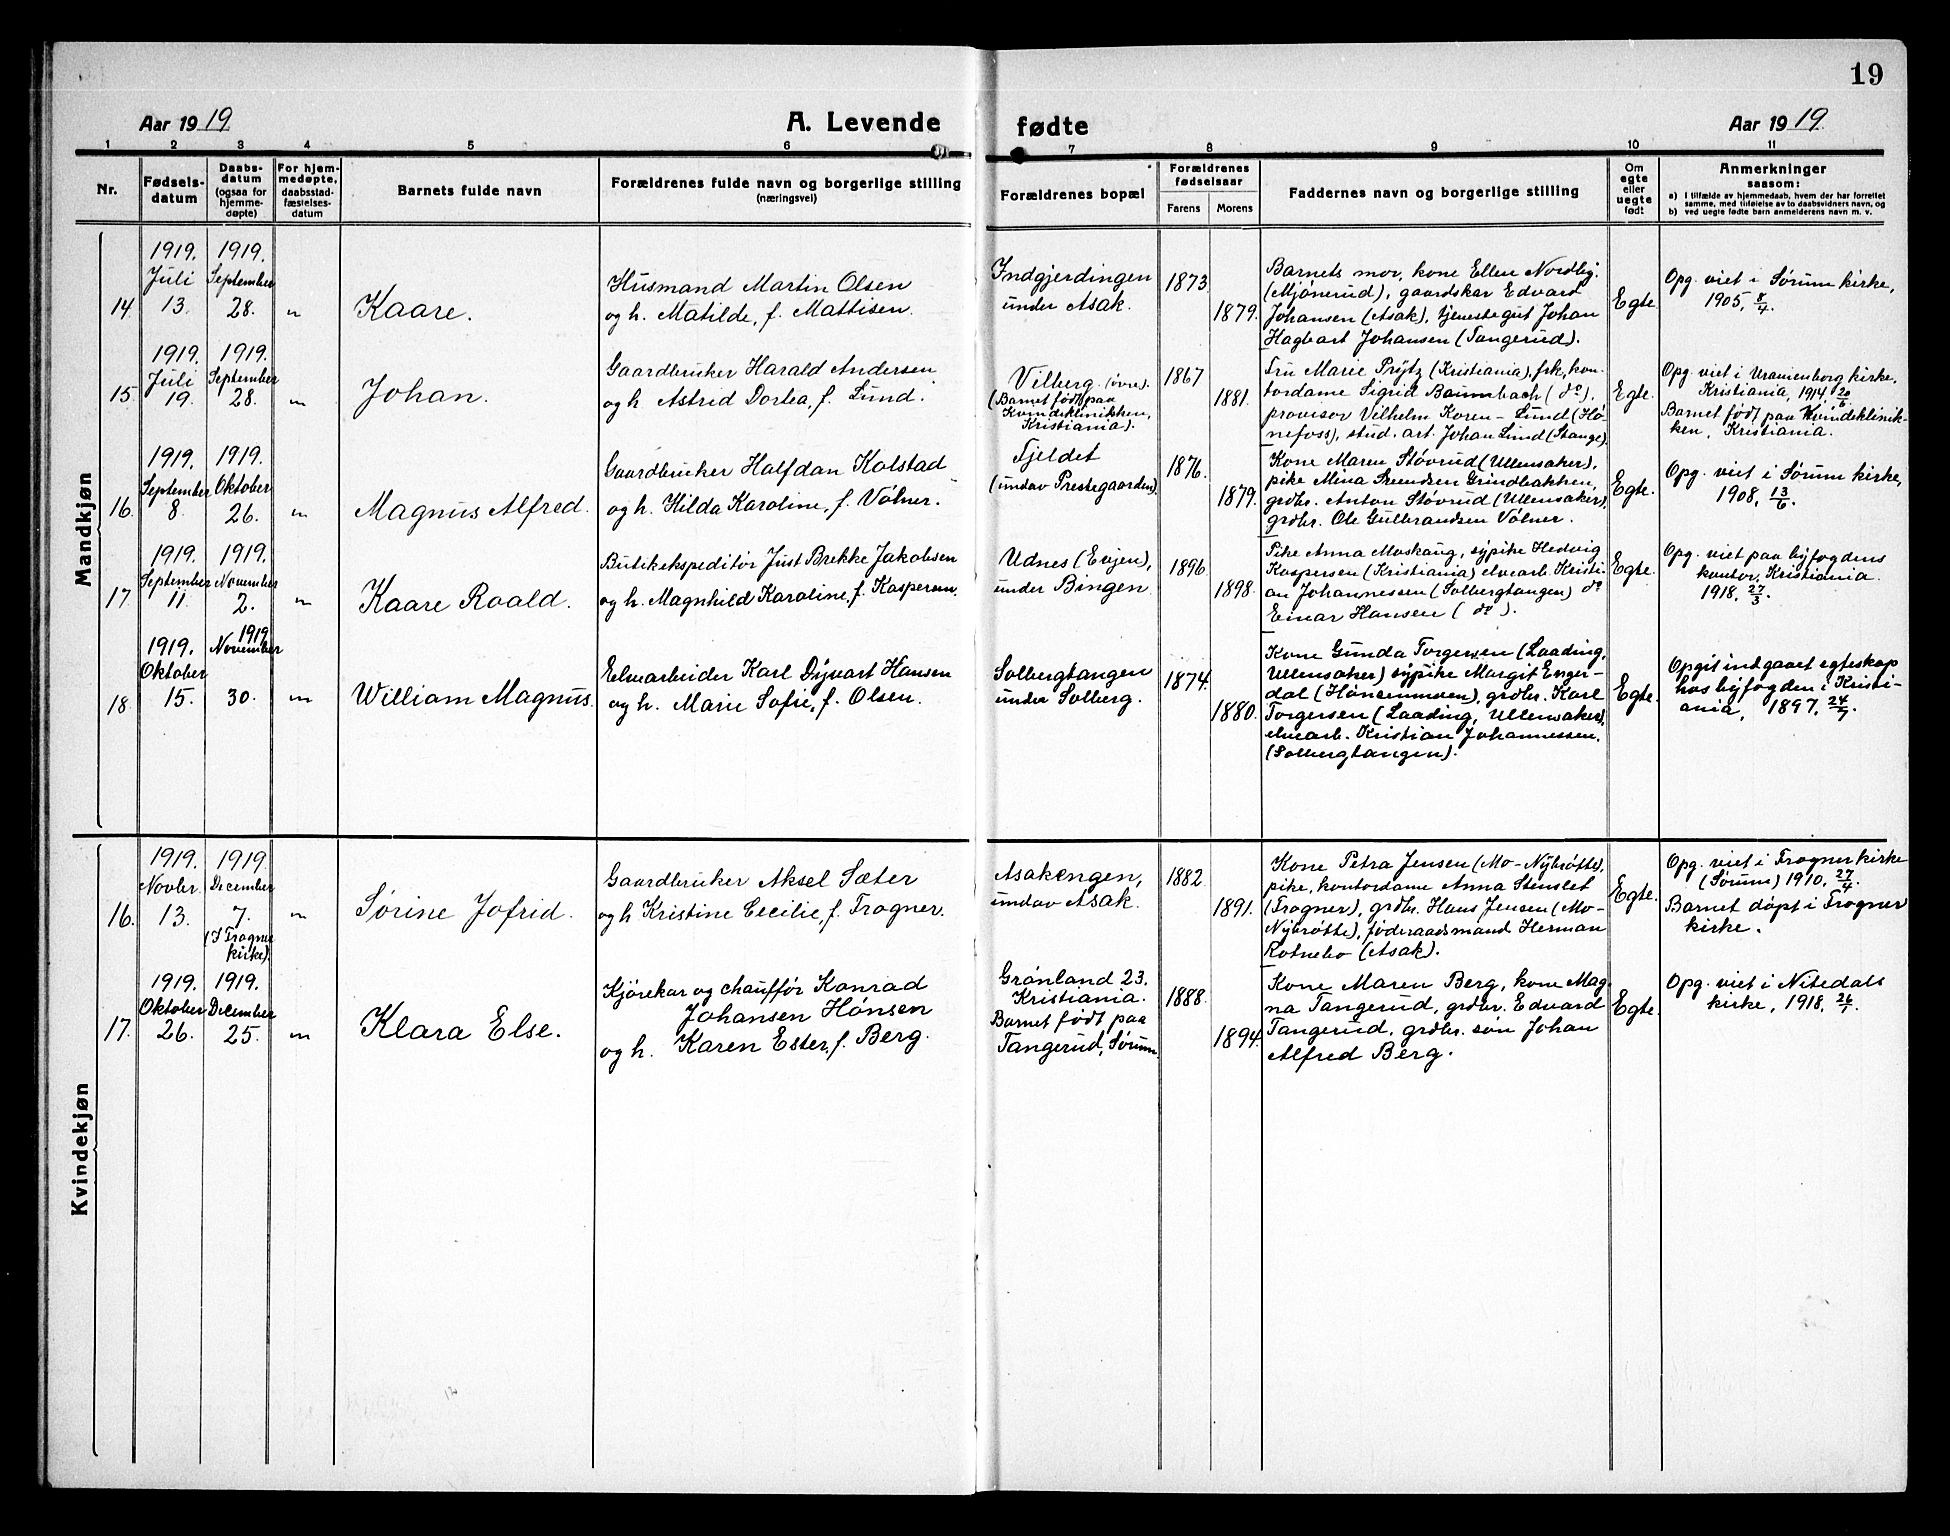 19
Aar 1919
A. Levende
fødte
Aar 1919.
1 2 3 4 5 6 7 8 9 10 11
Nr.
Fødsels-
datum
Daabs-
datum
(ogsaa for
hjemme-
døpte)
For hjem-
medøpte,
daabsstad-
fæstelses-
datum
Barnets fulde navn
Forældrenes fulde navn og borgerlige stilling
(næringsvei)
Forældrenes bopæl
Forældrenes
fødselsaar
Farens
Morens
Faddernes navn og borgerlige stilling
Om
egte
eller
uegte
født
Anmerkninger
saasom:
a) I tilfælde av hjemmedaab, hvem der har forrettet
samme, med tilføielse av to daabsvidners navn, og
b) ved uegte fødte barn anmelderens navn m. v.
Mandkjøn
14.
1919.
Juli
13.
1919.
September
28.
"
Kaare.
Husmand Martin Olsen
og h. Matilde, f. Mattisen.
Indgjerdingen
under Asak.
1873
1879.
Barnets mor, kone Ellen Nordby.
(Mjönerud), gaardskar Edvard
Johansen (Asak), tjenestegut Johan
Hagbart Johansen (Tangerud).
Egte.
Opg. viet i Sørum kirke,
1905, 8/4.
15.
1919.
Juli
19.
1919.
September
28.
"
Johan.
Gaardbruker Harald Andersen
og h. Astrid Dortea, f. Lund.
Vilberg (øvre).
(Barnet født paa
Kvindeklinikken,
Kristiania).
1867
1881.
Fru Marie Prÿtz (Kristiania), frk. kon-
tordame Sigrid Baumbach (do),
provisor Vilhelm Koren-Lund (Hö-
nefoss), stud. art. Johan Lund (Stange).
Egte.
Opg. viet i Uranienborg kirke,
Kristiania, 1914, 20/6.
Barnet født paa Kvindeklinik-
ken, Kristiania.
16.
1919.
September
8.
1919.
Oktober
26.
"
Magnus Alfred.
Gaardbruker Halfdan Kolstad
og h. Hilda Karoline, f. Völner.
Fjeldet
(undav Prestegaarden).
1876.
1879.
Kone Maren Stövrud (Ullensaker),
pike Mina Svendsen Grindbakken,
grdbr. Anton Stövrud (Ullensaker),
grdbr. Ole Gulbrandsen Völner.
Egte.
Opg. viet i Sørum kirke,
1908, 13/6.
17.
1919.
September
11.
1919.
November
2.
"
Kaare Roald.
Butikekspeditör Just Brekke Jakobsen
og h. Magnhild Karoline, f. Kaspersen.
Udnes (Evjen),
under Bingen.
1896.
1898.
Pike Anna Moskaug, sypike Hedvig
Kaspersen (Kristiania) elvearb. Kristi-
an Johannesen (Solbergtangen) do
Einar Hansen (do).
Egte.
Opg. viet paa byfogdens
kontor, Kristiania.
1918, 27/3.
18.
1919.
Oktober
15.
1919
November
30.
"
William Magnus.
Elvearbeider Karl Dyvart Hansen
og h. Marie Sofie, f. Olsen.
Solbergtangen
under Solberg.
1874.
1880.
Kone Gunda Torgersen (Laading,
Ullensaker) sypike Margit Enger-
dal (Hönsemoen), grdbr. Karl
Torgersen (Laading, Ullensaker),
elvearb. Kristian Johannessen,
(Solbergtangen).
Egte.
Opgit indgaaet egteskap
hos byfogden i Kristi-
ania, 1897, 24/7.
Kvindekjøn
16.
1919.
Novbr.
13.
1919
December
7.
(I Frogner
kirke).
"
Sørine Jofrid.
Gaardbruker Aksel Sæter
og h Kristine Cecilie, f. Frogner.
Asakengen,
undav Asak.
1882.
1891.
Kone Petra Jensen (Mo-Nybrötte),
pike, kontordame Anna Stenslet
(Frogner), grdbr. Hans Jensen (Mo-
Nybrötte), föderaadsmand Herman
Rotnebo (Asak).
Egte.
Opg. viet i Frogner kirke
(Sørum) 1910, 27/4.
Barnet döpt i Frogner
kirke.
17.
1919.
Oktober
26.
1919.
December
25.
"
Klara Else.
Kjörekar og chauffør Konrad
Johansen Hönsen
og h. Karen Ester, f. Berg.
Grönland 23.
Kristiania.
Barnet født paa
Tangerud, Sørum
1888.
1894.
Kone Maren Berg, kone Mag-
na Tangerud, grdbr. Edvard
Tangerud, grdbr. sön Johan
Alfred Berg.
Egte.
Opg. viet i Nitedals
kirke, 1918, 26/7.